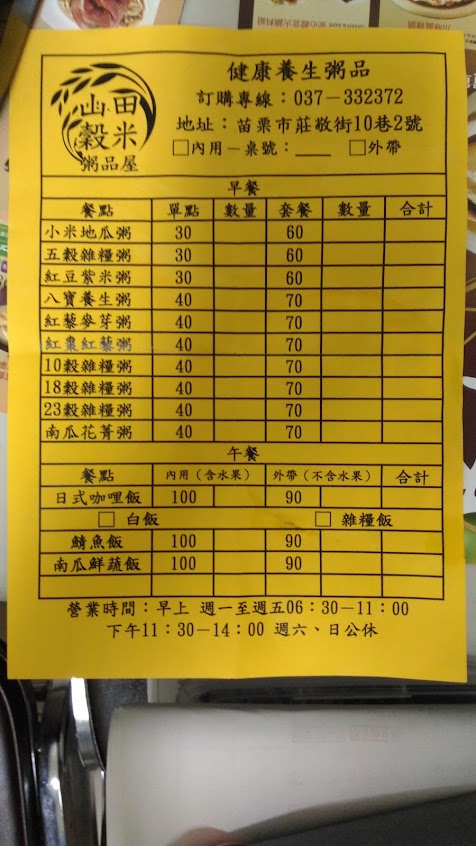 山田
穀米
粥品屋
健康養生粥品
訂購專線：037－332372
地址：苗栗市莊敬街10巷2號
□內用－桌號：____ □外帶
早餐
餐點 單點 數量 套餐 數量 合計
小米地瓜粥 30 60
五穀雜糧粥 30 60
紅豆紫米粥 30 60
八寶養生粥 40 70
紅藜麥芽粥 40 70
紅棗紅藜粥 40 70
10穀雜糧粥 40 70
18穀雜糧粥 40 70
23穀雜糧粥 40 70
南瓜花菁粥 40 70
午餐
餐點 內用（含水果） 外帶（不含水果） 合計
日式咖哩飯 100 90
□ 白飯 □ 雜糧飯
鯖魚飯 100 90
南瓜鮮蔬飯 100 90
營業時間：早上 週一至週五06：30－11：00
下午11：30－14：00 週六、日公休